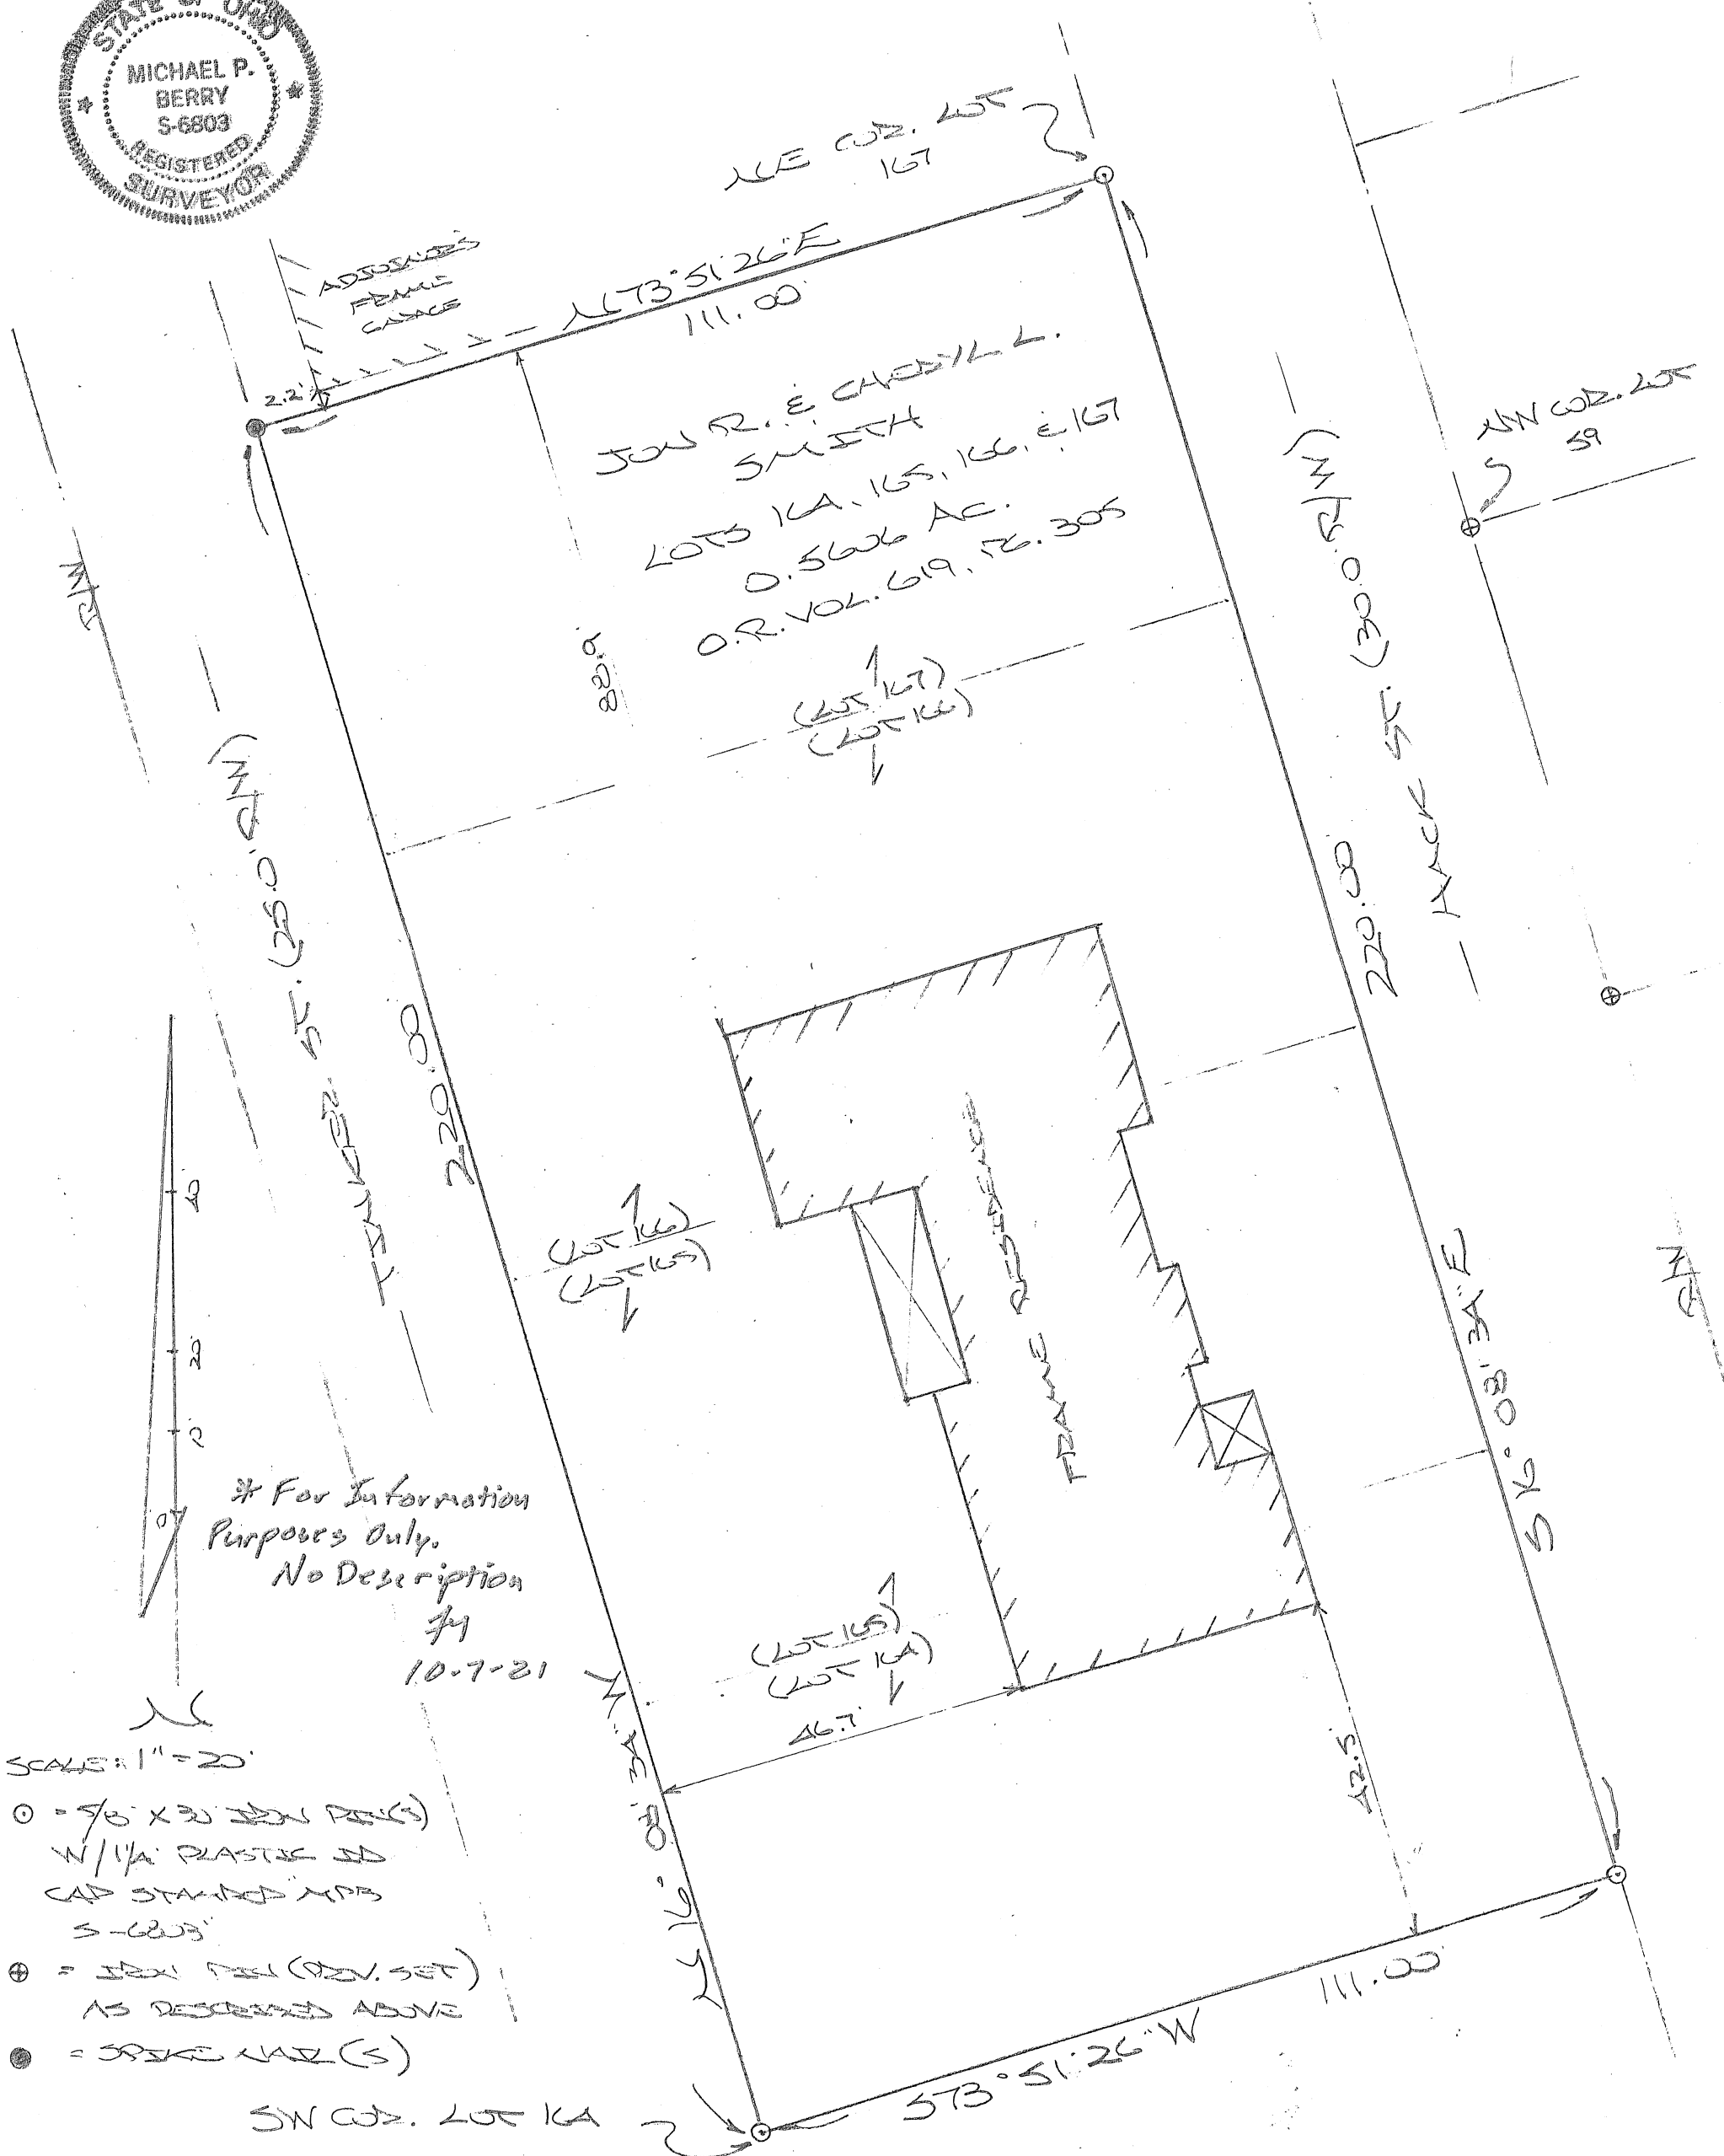 STATE OF OHIO
MICHAEL P.
BERRY
S-6803
REGISTERED
SURVEYOR
NE COR. LOT
167
ADJOINER'S
FRAME
GARAGE
N 73°51'26"E
111.00'
2.2'
JON R. & CHERYL L.
SMITH
LOTS 164, 165, 166, & 167
0.5606 AC.
O.R. VOL. 619, PG. 305
NW COR. LOT
59
R/W
(LOT 167)
(LOT 166)
TINKER ST. (25.0' R/W)
220.00
MACK ST. (30.0' R/W)
220.00
(LOT 166)
(LOT 165)
FRAME RESIDENCE
S 16° 08' 34" E
R/W
40
20
10
0
* For Information
Purposes Only.
No Description
10-7-21
(LOT 165)
(LOT 164)
46.7'
42.5'
N 16° 08' 34" W
N
SCALE: 1" = 20'
= 5/8" X 30" IRON PIN(S)
W/ 1 1/4" PLASTIC ID
CAP STAMPED "MPB
S-6803"
= IRON PIN (PREV. SET)
AS DESCRIBED ABOVE
= SPIKE NAIL (S)
SW COR. LOT 164
S 73°51'26"W
111.00'